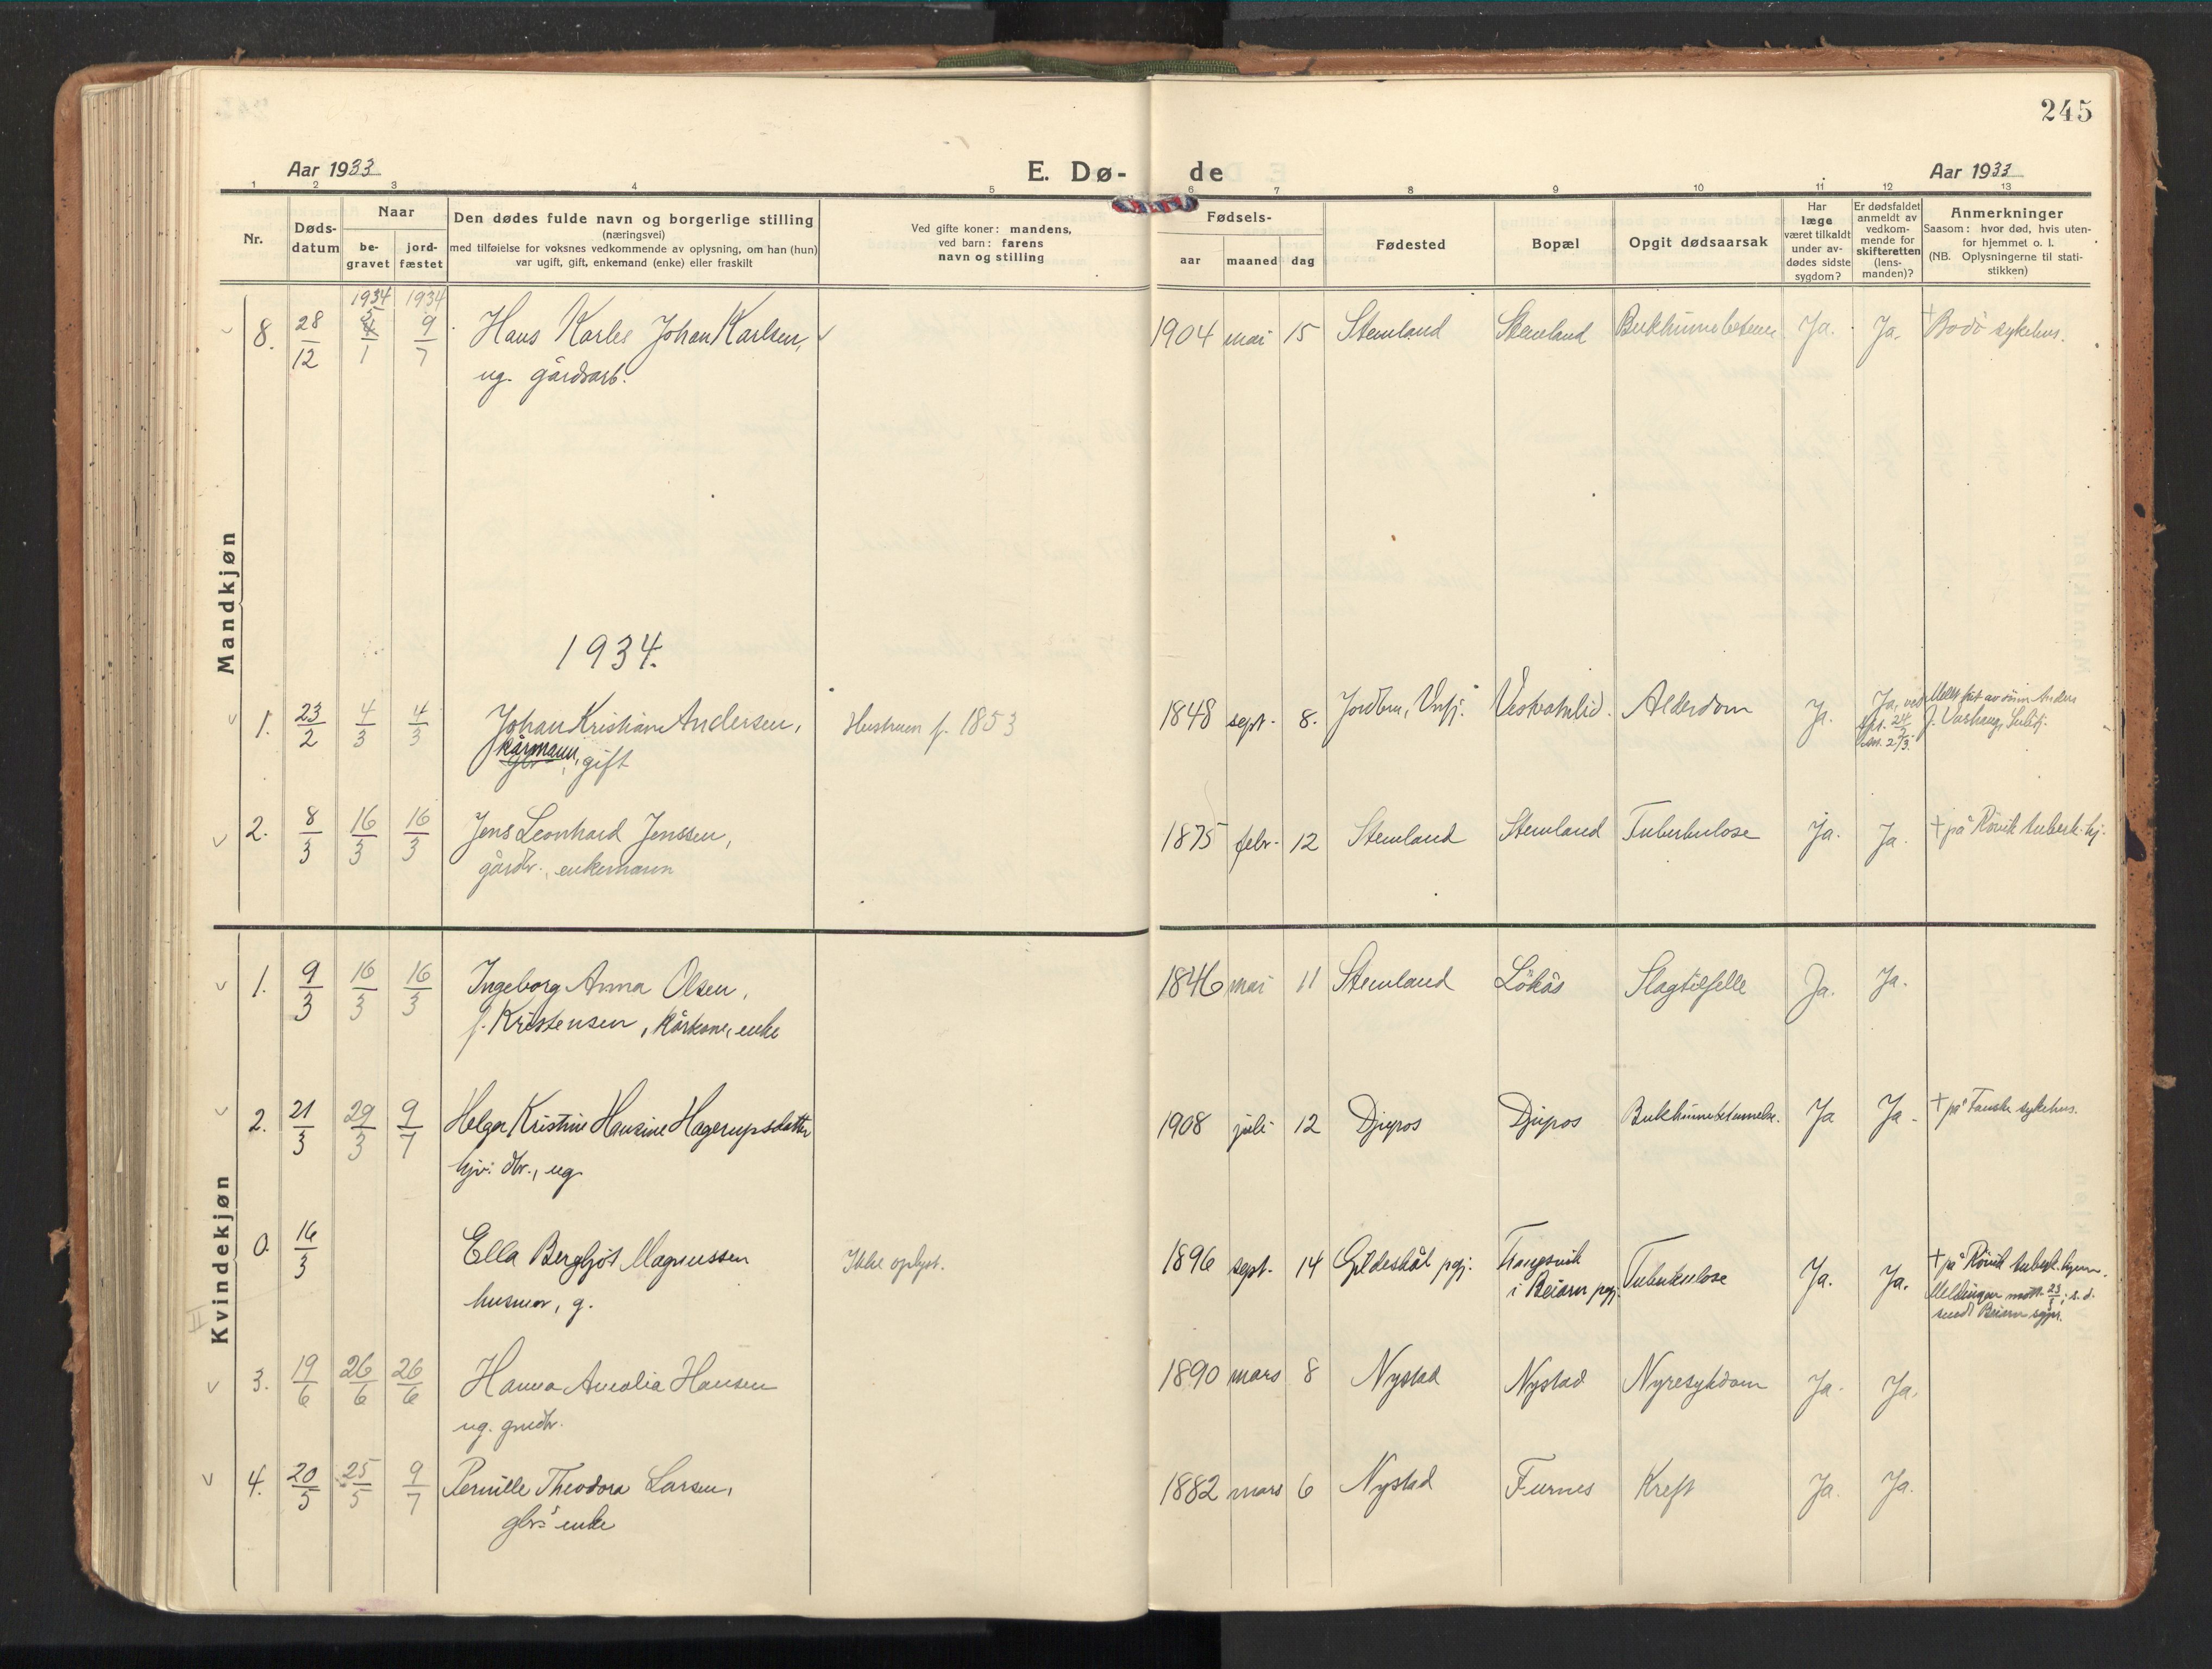 245
Aar 1933
E. Dø-
de
Aar 1933
1 2 3 4 5 6 7 8 9 10 11 12 13
Nr.
Døds-
datum
Naar
be-
gravet
jord-
fæstet
Den dødes fulde navn og borgerlige stilling
(næringsvei)
med tilføielse for voksnes vedkommende av oplysning, om han (hun)
var ugift, gift, enkemand (enke) eller fraskilt
Ved gifte koner: mandens,
ved barn: farens
navn og stilling
Fødsels-
aar maaned dag
Fødested
Bopæl
Opgit dødsaarsak
Har
læge
været tilkaldt
under av-
dødes sidste
sygdom?
Er dødsfaldet
anmeldt av
vedkom-
mende for
skifteretten
(lens-
manden)?
Anmerkninger
Saasom: hvor død, hvis uten-
for hjemmet o. l.
(NB. Oplysningerne til stati-
stikken)
Mandkjøn
1934 1934
8. 28/12 5/1 9/7 Hans Karles Johan Karlsen, 1904 mai 15 Stemland Stemland Ja. Ja. † Bodö sykehus.
ug. gårdsarb.
1934.
1. 23/2 4/3 4/3 Johan Kristian Andersen, Hustruen f. 1853 1848 sept. 8. Alderdom Ja. Ja, ved
kårmann, gift
2. 8/3 16/3 16/3 Jens Leonhard Jenssen, 1875 febr. 12 Stemland Stemland Tuberkulose Ja. Ja. † på Rövik tuberk.hj.
gårdbr., enkemann
Kvindekjøn
1. 9/3 16/3 16/3 Ingeborg Anna Olsen, 1846 mai 11 Stemland Lökås Slagtilfelle Ja. Ja.
f. Kristensen, kårkone, enke
2. 21/3 29/3 9/7 Helga Kristine Hansine Hagerupsdatter 1908 juli 12 Djupos Djupos Bukhinnebetennelse. Ja Ja. † på Fauske sykehus.
ug.
0. 16/3 Ella Bergljot Magnussen Ikke oplyst. 1896 sept. 14 Gildeskål pgj. Tuberkulose Ja. Ja. † på Rövik tuberk.hjem.
i Beiarn pgj.
husmor, g.
Meldingen mott. 23/3; s.d.
sendt Beiarn sgpr.
3. 19/6 26/6 26/6 Hanna Amalia Hansen 1890 mars 8 Nystad Nystad Nyresykdom Ja. Ja.
ug.
4. 20/5 25/5 9/7 Pernille Theodora Larsen, 1882 mars 6 Nystad Furnes Kreft Ja. Ja.
gbrs enke